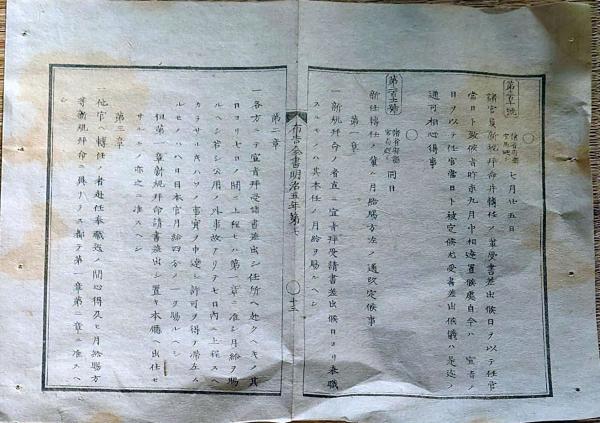 七月廿五日
諸官員新規拜命并轉任ノ輩受書差出候日ヲ以テ任官
當日ト致候者昨未九月中相達置候處自今ハ宣旨ノ
日ヲ以テ任官當日ト被定候尤受書差出候儀ハ是迄ノ
通可相心得事
同日
新任轉任ノ輩ヘ月給賜方左ノ通改定候事
第一章
一新規拜命ノ者直ニ宣旨拜受請書差出候日ヨリ奉職
スルモノハ其本任ノ月給ヲ賜ルヘシ
布告全書明治五年第七
十三
第二章
一各方ニテ宣旨拜受請書差出シ任所ヘ赴クヘキノ其
日ヨリ七日ノ間ニ上程セハ第一章ニ准シ月給ヲ賜
ルヘシ若シ公用ノ外事故アリテ七日内ニ上程スヘ
カラサル者ハソノ事實ヲ申達シ許可ヲ得テ滯在ス
ルモノハハ日日本官月給四方ノ一ヲ賜ルヘシ
但第一章新規拜命請書差出シ置キ本職ヘ出仕セ
サルモノ亦之ニ准スヘシ
第三章
一他官ヘ轉任ノ者赴任奉職迄ノ間心得及ヒ月給賜方
等新規拜命ニ異ナリス都テ第一章第二章ニ准スヘ
シ